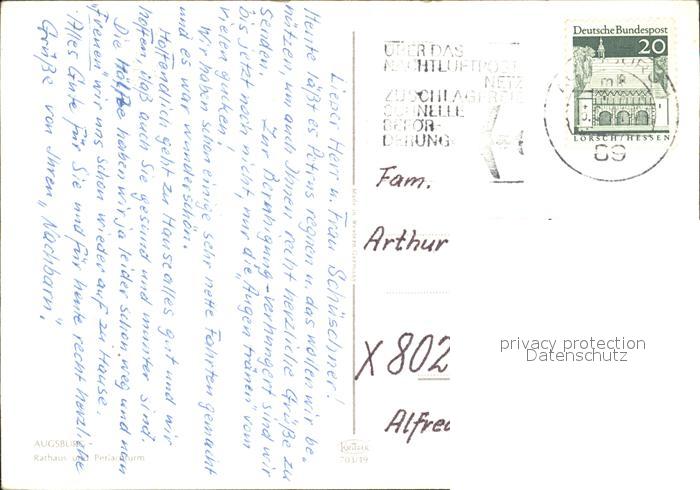 Liebe Herr u. Frau Schüschner!
Heute läßt es Petrus regnen u. das wollen wir be-
nützen, um auch Ihnen recht herzliche Grüße zu
senden. Zur Beruhigung - verhungert sind wir
bis jetzt noch nicht, nur die "Augen tränen" vom
vielen gucken.
Wir haben schon einige sehr nette Fahrten gemacht
und es war wunderschön.
Hoffendlich geht zu Hause alles gut und wir
hoffen, daß auch Sie gesund und munter sind.
Die Hälfte haben wir ja leider schon weg und nun
"freuen" wir uns schon wieder auf zu Hause.
Alles Gute für Sie und für heute recht herzliche
Grüße von Ihren "Nachbarn".
AUGSBURG
Rathaus und Perlachturm
KRÜGER
703/19
ÜBER DAS
NACHTLUFTPOST
NETZ
ZUSCHLAGFREI
SCHNELLE
BEFÖR-
DERUNG
Deutsche Bundespost
20
LORSCH/HESSEN
89
Fam.
Arthur
X 802
Alfred
privacy protection
Datenschutz